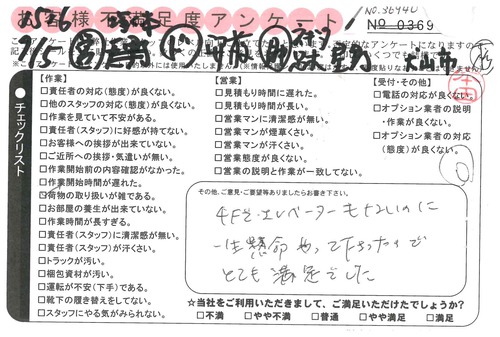 お客様不満足度アンケート
NO.36440
No 0369
大山市
チェックリスト
【作業】
□責任者の対応(態度)が良くない。
□他のスタッフの対応(態度)が良くない。
□作業を見ていて不安がある。
□責任者(スタッフ)に好感が持てない。
□お客様への挨拶が出来ていない。
□ご近所への挨拶・気遣いが無い。
□作業開始前の内容確認がなかった。
□作業開始時間が遅れた。
□荷物の取り扱いが雑である。
□お部屋の養生が出来ていない。
□作業時間が長すぎる。
□責任者(スタッフ)に清潔感が無い。
□責任者(スタッフ)が汗くさい。
□トラックが汚い。
□梱包資材が汚い。
□運転が不安(下手)である。
□靴下の履き替えをしてない。
□スタッフにやる気がみられない。
【営業】
□見積もり時間に遅れた。
□見積もり時間が長い。
□営業マンに清潔感が無い。
□営業マンが煙草くさい。
□営業マンが汗くさい。
□営業態度が良くない。
□営業の説明と作業が一致してない。
【受付・その他】
□電話の対応が良くない。
□オプション業者の説明
・作業が良くない。
□オプション業者の対応
(態度)が良くない。
その他、ご意見・ご要望等ありましたらお書き下さい。
4Fでエレベーターもないのに
一生懸命やって下さったので
とても満足でした
☆当社をご利用いただきまして、ご満足いただけたでしょうか?
□不満 □やや不満 □普通 □やや満足 □満足